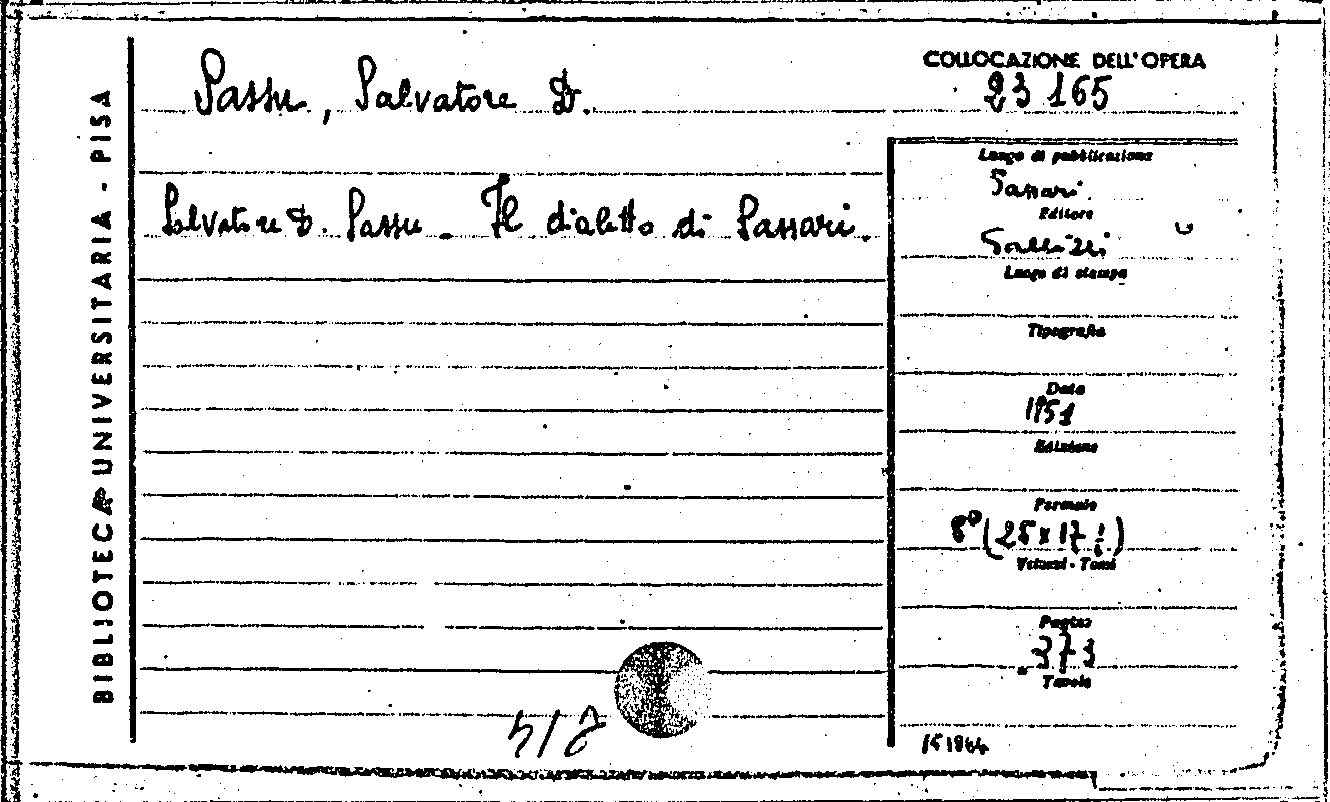 BIBLIOTECA UNIVERSITARIA - PISA
COLLOCAZIONE DELL'OPERA
23 165
Sassu, Salvatore D.
Salvatore D. Sassu - Il dialetto di Sassari.
Luogo di pubblicazione
Sassari
Editore
Luogo di stampa
Tipografia
Data
1951
Edizione
Formato
8° (25 x 17
Volumi - Tomi
Pagine
373
Tavole